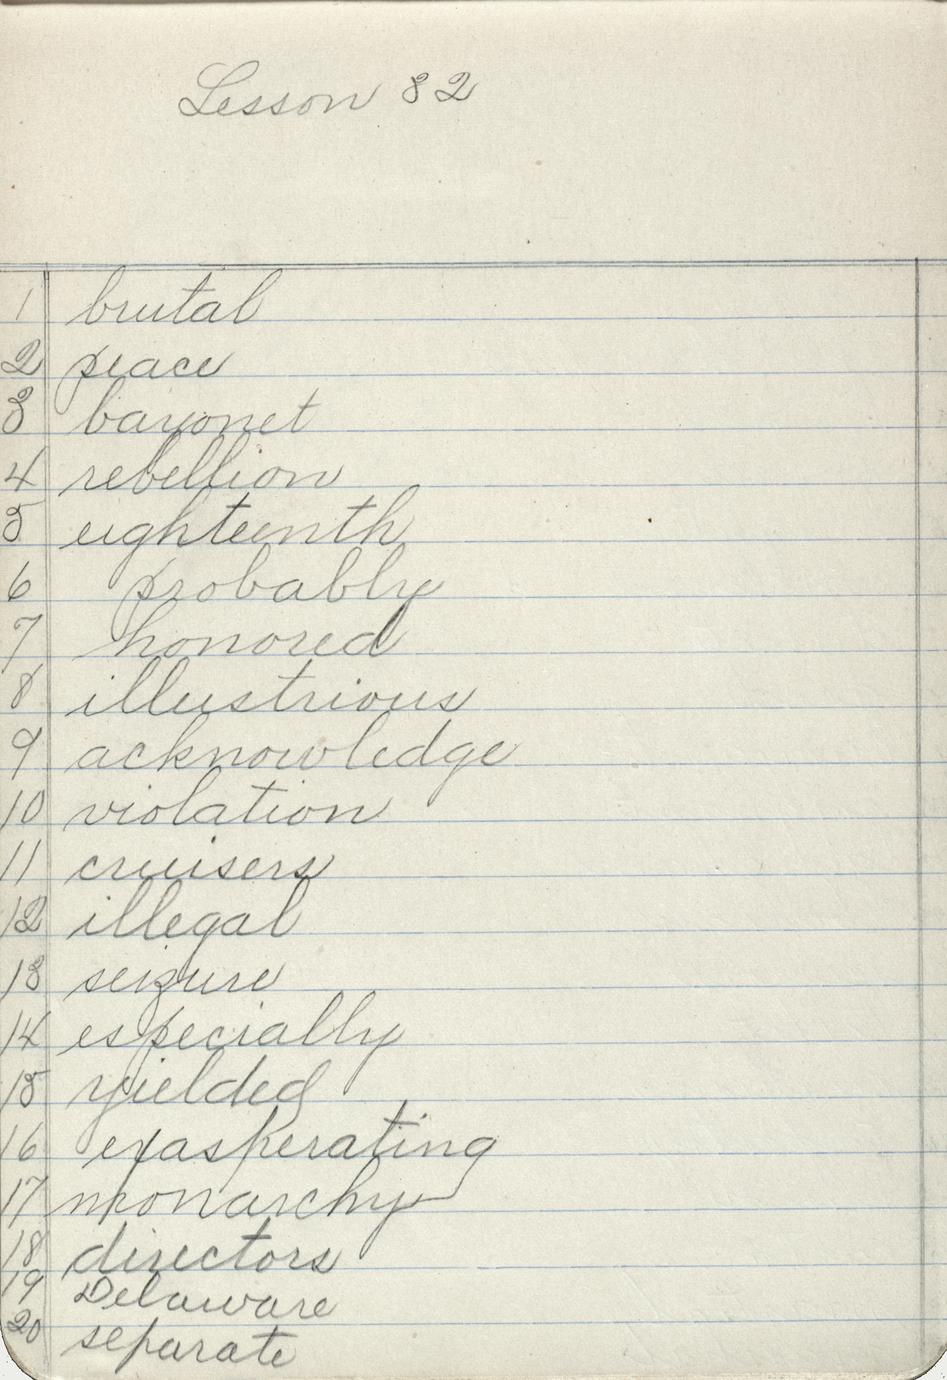 Lesson 82
1 brutal
2 peace
3 baronet
4 rebellion
5 eighteenth
6 probably
7 honored
8 illustrious
9 acknowledge
10 violation
11 cruisers
12 illegal
13 seizure
14 especially
15 yielded
16 exasperating
17 monarchy
18 directors
19 Delaware
20 separate